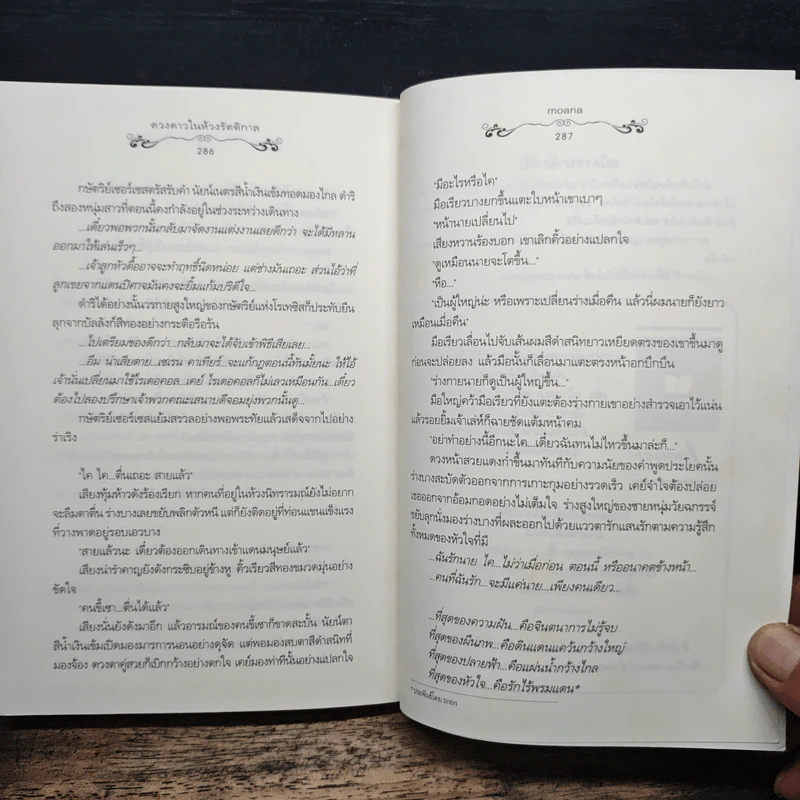 ดวงดาวในห้วงรัตติกาล
286
กษัตริย์เซอร์เซสตรัสรับคำ นัยน์เนตรสีน้ำเงินเข้มทอดมองไกล ดำริ
ถึงสองหนุ่มสาวที่ตอนนี้คงกำลังอยู่ในช่วงระหว่างเดินทาง
...เดี๋ยวพอพวกนั้นกลับมาจัดงานแต่งงานเลยดีกว่า จะได้มีหลาน
ออกมาให้เล่นเร็วๆ...
...เจ้าลูกหัวดื้ออาจจะทำฤทธิ์นิดหน่อย แต่ช่างมันเถอะ ส่วนไอ้ว่าที่
ลูกเขยจากแดนปีศาจมันคงจะยิ้มแก้มปริดีใจ...
ดำริได้อย่างนั้นวรกายสูงใหญ่ของกษัตริย์แห่งโรเทซิสก็ประทับยืน
ลุกจากบัลลังก์สีทองอย่างกระตือรือร้น
...ไปเตรียมของดีกว่า...กลับมาจะได้จับเข้าพิธีเสียเลย...
...อืม น่าเสียดาย...เซเรน คาเทียร์...จะแก้กฎตอนนี้ทันมั้ยนะ ให้ไอ้
เจ้านั่นเปลี่ยนมาใช้ไรเดอคอล...เคย์ ไรเดอคอลก็ไม่เลวเหมือนกัน...เดี๋ยว
ต้องไปลองปรึกษาเจ้าพวกคณะเสนาบดีจอมยุ่งพวกนั้นดู...
กษัตริย์เซอร์เซสแย้มสรวลอย่างพอพระทัยแล้วเสด็จจากไปอย่าง
ร่าเริง
"ไค ไค...ตื่นเถอะ สายแล้ว"
เสียงทุ้มห้าวดังร้องเรียก หากคนที่อยู่ในห้วงนิทรารมณ์ยังไม่อยาก
จะลืมตาตื่น ร่างบางเลยขยับพลิกตัวหนี แต่ก็ยังติดอยู่ที่ท่อนแขนแข็งแรง
ที่วางพาดอยู่รอบเอวบาง
"สายแล้วนะ เดี๋ยวต้องออกเดินทางเข้าแดนมนุษย์แล้ว"
เสียงน่ารำคาญยังดังกระซิบอยู่ข้างหู คิ้วเรียวสีทองขมวดมุ่นอย่าง
ขัดใจ
"คนขี้เซา...ตื่นได้แล้ว"
เสียงนั่นยังดังมาอีก แล้วอารมณ์ของคนขี้เซาก็ขาดสะบั้น นัยน์ตา
สีน้ำเงินเข้มเปิดมองมารการนอนอย่างดุจัด แต่พอมองสบตาสีดำสนิทที่
มองจ้อง ดวงตาคู่สวยก็เบิกกว้างอย่างตกใจ เคย์มองท่าทีนั้นอย่างแปลกใจ
moana
287
"มีอะไรหรือไค"
มือเรียวบางยกขึ้นแตะใบหน้าเขาเบาๆ
"หน้านายเปลี่ยนไป"
เสียงหวานร้องบอก เขาเลิกคิ้วอย่างแปลกใจ
"ดูเหมือนนายจะโตขึ้น..."
"หือ..."
"เป็นผู้ใหญ่น่ะ หรือเพราะเปลี่ยนร่างเมื่อคืน แล้วนี่ผมนายก็ยังยาว
เหมือนเมื่อคืน"
มือเรียวเลื่อนไปจับเส้นผมสีดำสนิทยาวเหยียดตรงของเขาขึ้นมาดู
ก่อนจะปล่อยลง แล้วมือนั้นก็เลื่อนมาแตะตรงหน้าอกบึกบึน
"ร่างกายนายก็ดูเป็นผู้ใหญ่ขึ้น..."
มือใหญ่คว้ามือเรียวที่ยังแตะต้องร่างกายเขาอย่างสำรวจเอาไว้แน่น
แล้วรอยยิ้มเจ้าเล่ห์ก็ฉายชัดแต้มหน้าคม
"อย่าทำอย่างนี้อีกนะไค...เดี๋ยวฉันทนไม่ไหวขึ้นมาล่ะก็..."
ดวงหน้าสวยแดงก่ำขึ้นมาทันทีกับความนัยของคำพูดประโยคนั้น
ร่างบางสะบัดตัวออกจากการเกาะกุมอย่างรวดเร็ว เคย์จำใจต้องปล่อย
เธอออกจากอ้อมกอดอย่างไม่เต็มใจ ร่างสูงใหญ่ของชายหนุ่มวัยฉกรรจ์
ขยับลุกนั่งมองร่างบางที่ผละออกไปด้วยแววตารักแสนรักตามความรู้สึก
ทั้งหมดของหัวใจที่มี
...ฉันรักนาย ไค...ไม่ว่าเมื่อก่อน ตอนนี้ หรืออนาคตข้างหน้า...
...คนที่ฉันรัก...จะมีแค่นาย...เพียงคนเดียว...
...ที่สุดของความฝัน...คือจินตนาการไม่รู้จบ
ที่สุดของผืนภพ...คือดินแดนแคว้นกว้างใหญ่
ที่สุดของปลายฟ้า...คือแผ่นน้ำกว้างไกล
ที่สุดของหัวใจ...คือรักไร้พรมแดน*
* ประพันธ์โดย